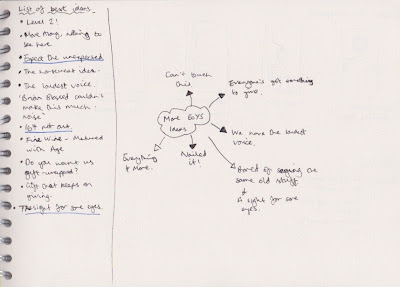 List of best ideas
• Level 2!
• Move Along, nothing to
see here
• Expect the unexpected
• The basement idea.
• The loudest voice.
'Brian Blessed couldn't
make this much
noise'
• not out.
• Fine Wine - Matured
with Age
• Do you want us
gift-wrapped?
• Gift that keeps on
giving.
• The sight for sore eyes.
Can't touch
this
Everyone's got something
to give.
More
Ideas
We have the loudest
voice.
Everything
& More.
Nailed
it!
Bored of saying the
same old stuff
&
A sight for sore
eyes.